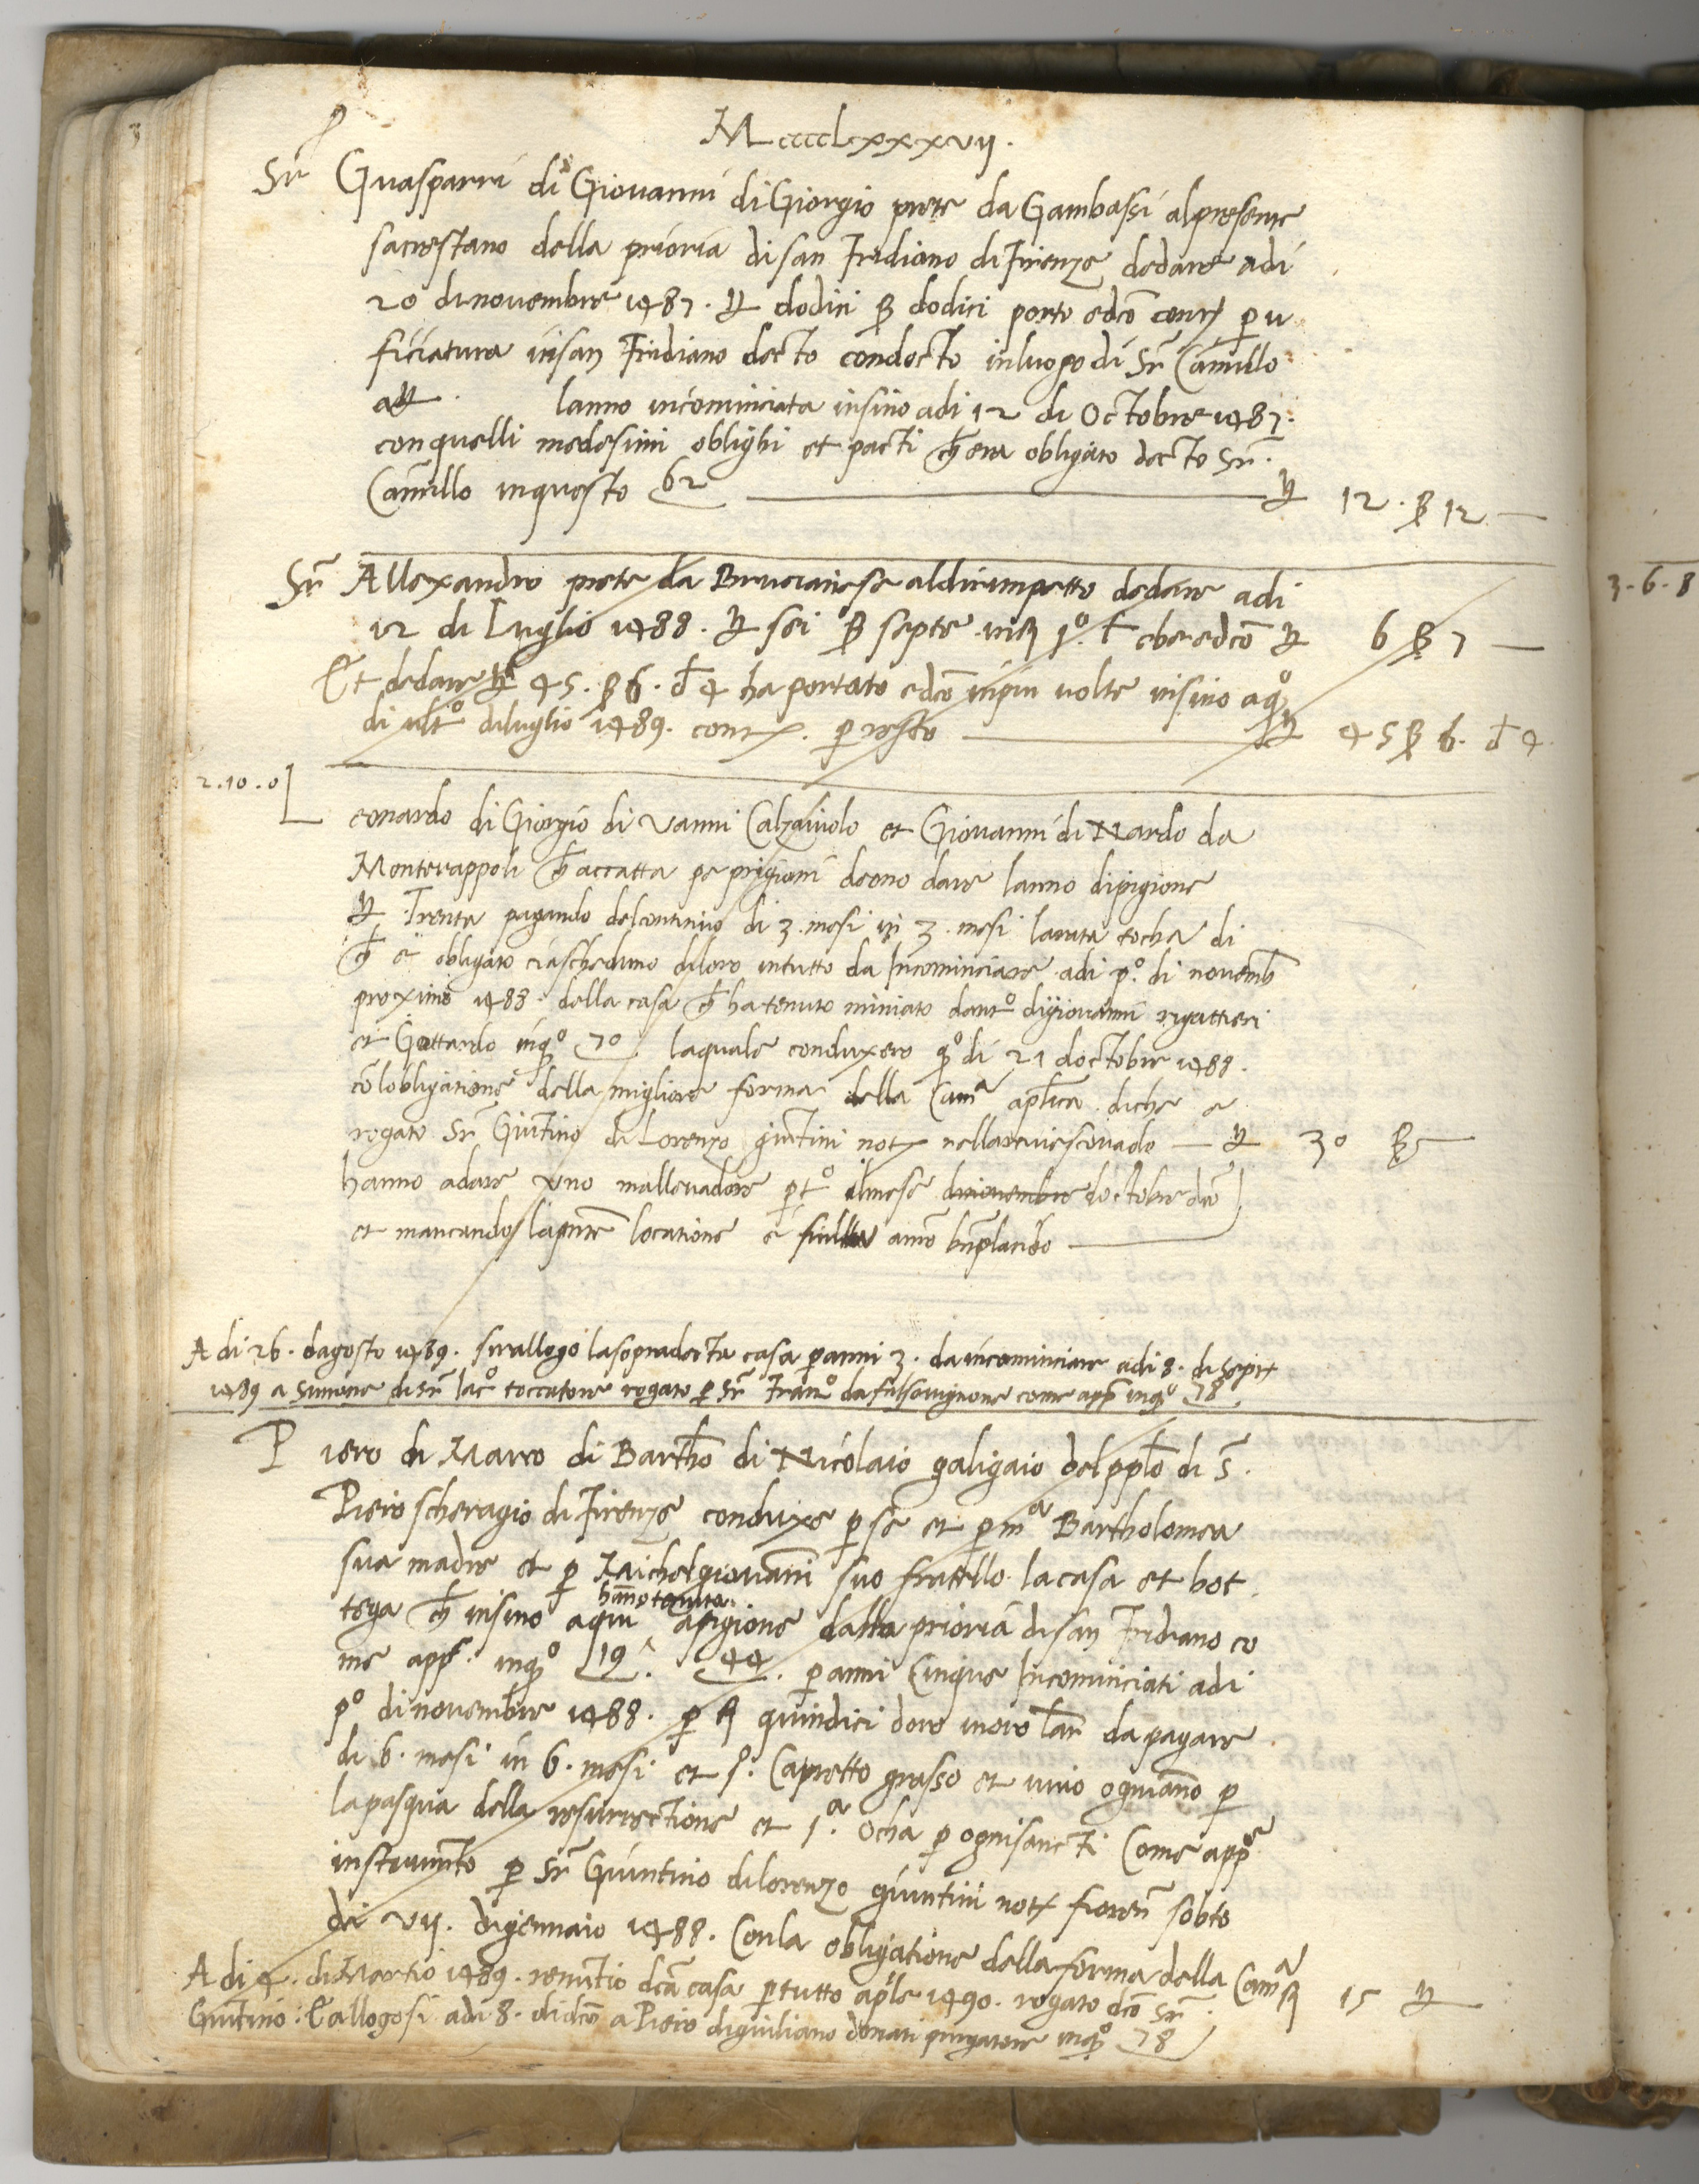 Mccccclxxxvij.
Ser Guasparri di Giovanni di Giorgio prete da Gambassi al presente
sacrestano della prioria di san Fridiano di Firenze dedare adi
20 di novembre 1487. dodici ß dodici porto edco per u
ficiatura in san Fridiano decto condocto in luogo di Sr Camillo
lanno incominciata insino adi 12 di Octobre 1487.
con quelli medesimi oblighi et pacti ch era obligato decto Sr.
Camillo in questo 62 12. ß 12 —
Sr Allexandro prete da Brucianese aldirimpetto dedare adi
12 di Luglio 1488. sei ß septe in 1o. ebe edco 6 ß 7 —
3.6.8
Et dedare 45. ß 6. d 4 ha portato edco in piu volte insino a qo
di ulto di luglio 1489. p resto 45 ß 6. d 4
2.10.0
Leonardo di Giorgio di Vanni Calzaiuolo et Giovanni di Nardo da
Monterappoli ch accatta pe prigioni deono dare lanno di pigione
Trenta pagando delcontinuo di 3. mesi in 3. mesi la rata tocha di
ch e obligato ciaschuno di loro in tutto da Incominciare adi po. di novemb
proximo 1488. della casa ch ha tenuto miniato danto di giovanni rigattieri
et Gottardo in qo 70 laquale conduxero qo di 21 doctobre 1488.
co lobligatione della migliore forma della Cama aplica diche e
rogato Sr Giuntino di Lorenzo giuntini not nellarcivescovado — 30 ß —
hanno adare uno mallevadore p to ilmese di novembre doctobre dco
et mancando la pnte locatione e nulla a mio bnplacito
A di 26. dagosto 1489. si rallogo la sopradecta casa p anni 3. da incominciare adi 8. di Sept
1489 a Simone di Sr Iaco toccatore rogato p Sr Franco da falsovignone come app in qo 78
Piero di Marco di Bartho di Nicolaio galigaio del pplo di S.
Piero scheragio di Firenze conduxe p se et p ma Bartholomea
sua madre et p Michelgiovanni suo fratello la casa et bot
hanno tenuta
tega ch insino a qui apigione dalla prioria di san Fridiano co
me app. in qo 19. 44. p anni Cinque Incominciati adi
po di novembre 1488. p quindici doro in oro lar da pagare
di 6. mesi in 6. mesi et 1o. Capretto grasso et vivo ogni anno p
la pasqua della resurrectione et 1a. Ocha p ognisancti Come appe
instrumto p Sr Giuntino di lorenzo giuntini not fioren sotto
di vij. di gennaio 1488. Con la obligatione della forma della Cama 15
A di 4. di Martio 1489. renuntio dca casa p tutto aple 1490. rogato dco Sr
Giuntino: Et allogosi adi 8. di dco a Piero di giuliano donati purgatore in qo 78